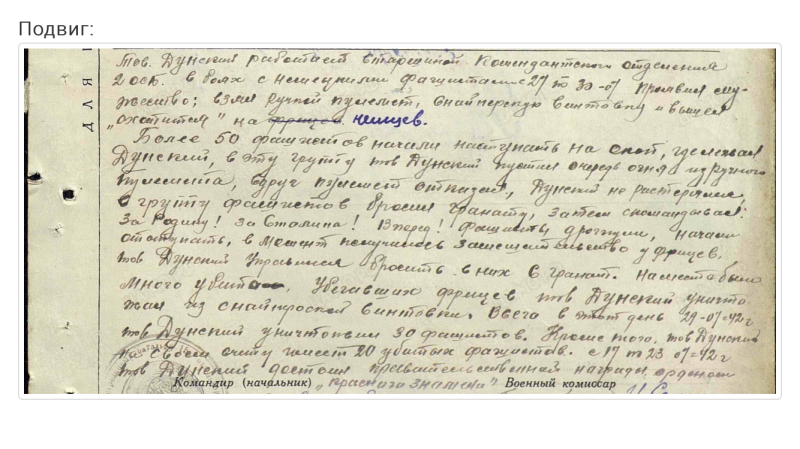 Подвиг:
Тов. Дунский работает старшиной Комендантского отделения
2 осб. в боях с немецкими фашистами с 27 по 30-07 проявил му-
жество; взял ручной пулемет, снайперскую винтовку и вышел
„охотится" на фрицев немцев.
Более 50 фашистов начали наступать на скат, где лежал
Дунский, в эту группу тов Дунский пустил очередь огня из ручного
пулемета, вдруг пулемет отказал, Дунский не растерялся,
в группу фашистов бросил гранату, затем скомандывал:
За Родину! За Сталина! Вперед! Фашисты дрогнули, начали
отступать, в момент получилось замешательство у фрицев,
тов Дунский Управился бросить в них 6 гранат. На месте было
много убито. Убегавших фрицев тов Дунский уничто
жал из снайперской винтовки. Всего в этот день 29-07-42 г
тов Дунский уничтожил 30 фашистов. Кроме того, тов Дунский
на своем счету имеет 20 убитых фашистов. с 19 по 23 07-42 г
тов Дунский достоин правительственной награды, орденом
Командир (начальник) „Красного знамени" Военный комиссар
ДЛЯ